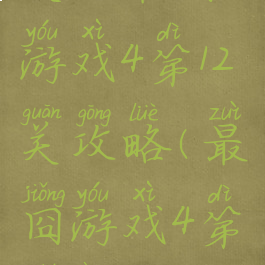 yóu xì dì
游戏4第12
guān gōng lüè zuì
关攻略(最
jiǒng yóu xì dì
囧游戏4第